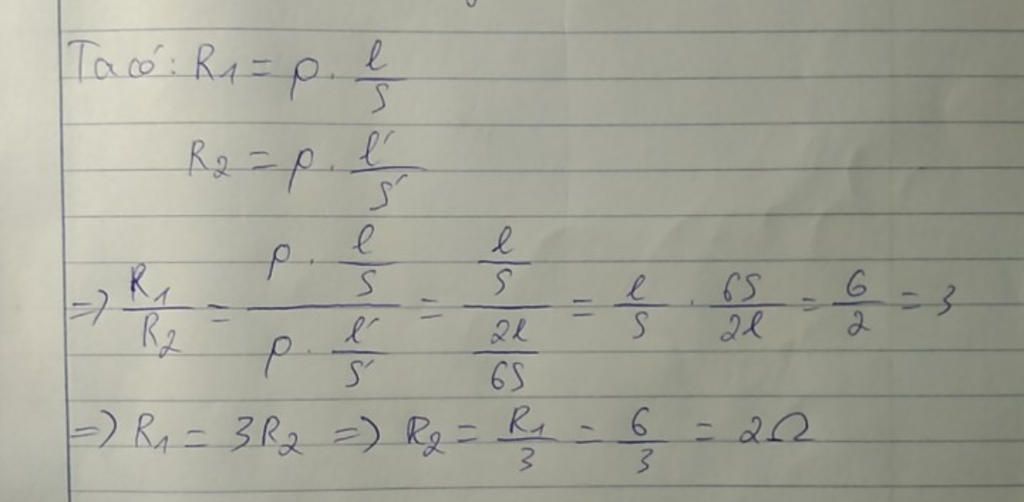 Ta có: R1 = ρ . l/S
R2 = ρ . l'/S'
=> R1/R2 = (ρ . l/S)/(ρ . l'/S') = (l/S)/(2l/6S) = l/S . 6S/2l = 6/2 = 3
=> R1 = 3R2 => R2 = R1/3 = 6/3 = 2Ω